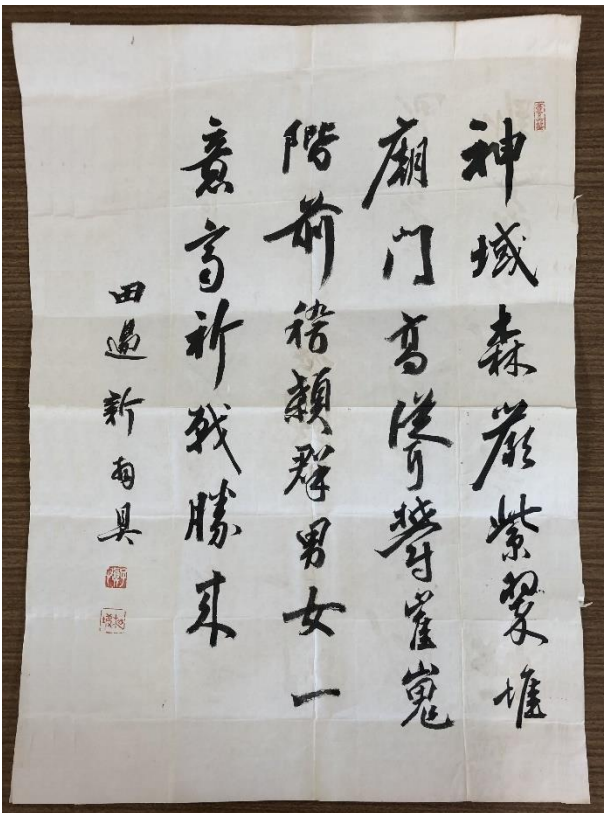 神域森嚴紫翠堆
廟門高聳鬱崔嵬
階前稽顙群男女一
意高祈戰勝来
田邊新